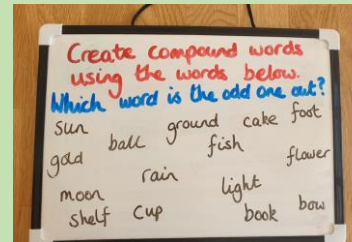 Create compound words
using the words below.
Which word is the odd one out?
sun ground cake foot
ball fish
gold flower
rain
moon light
shelf cup book bow